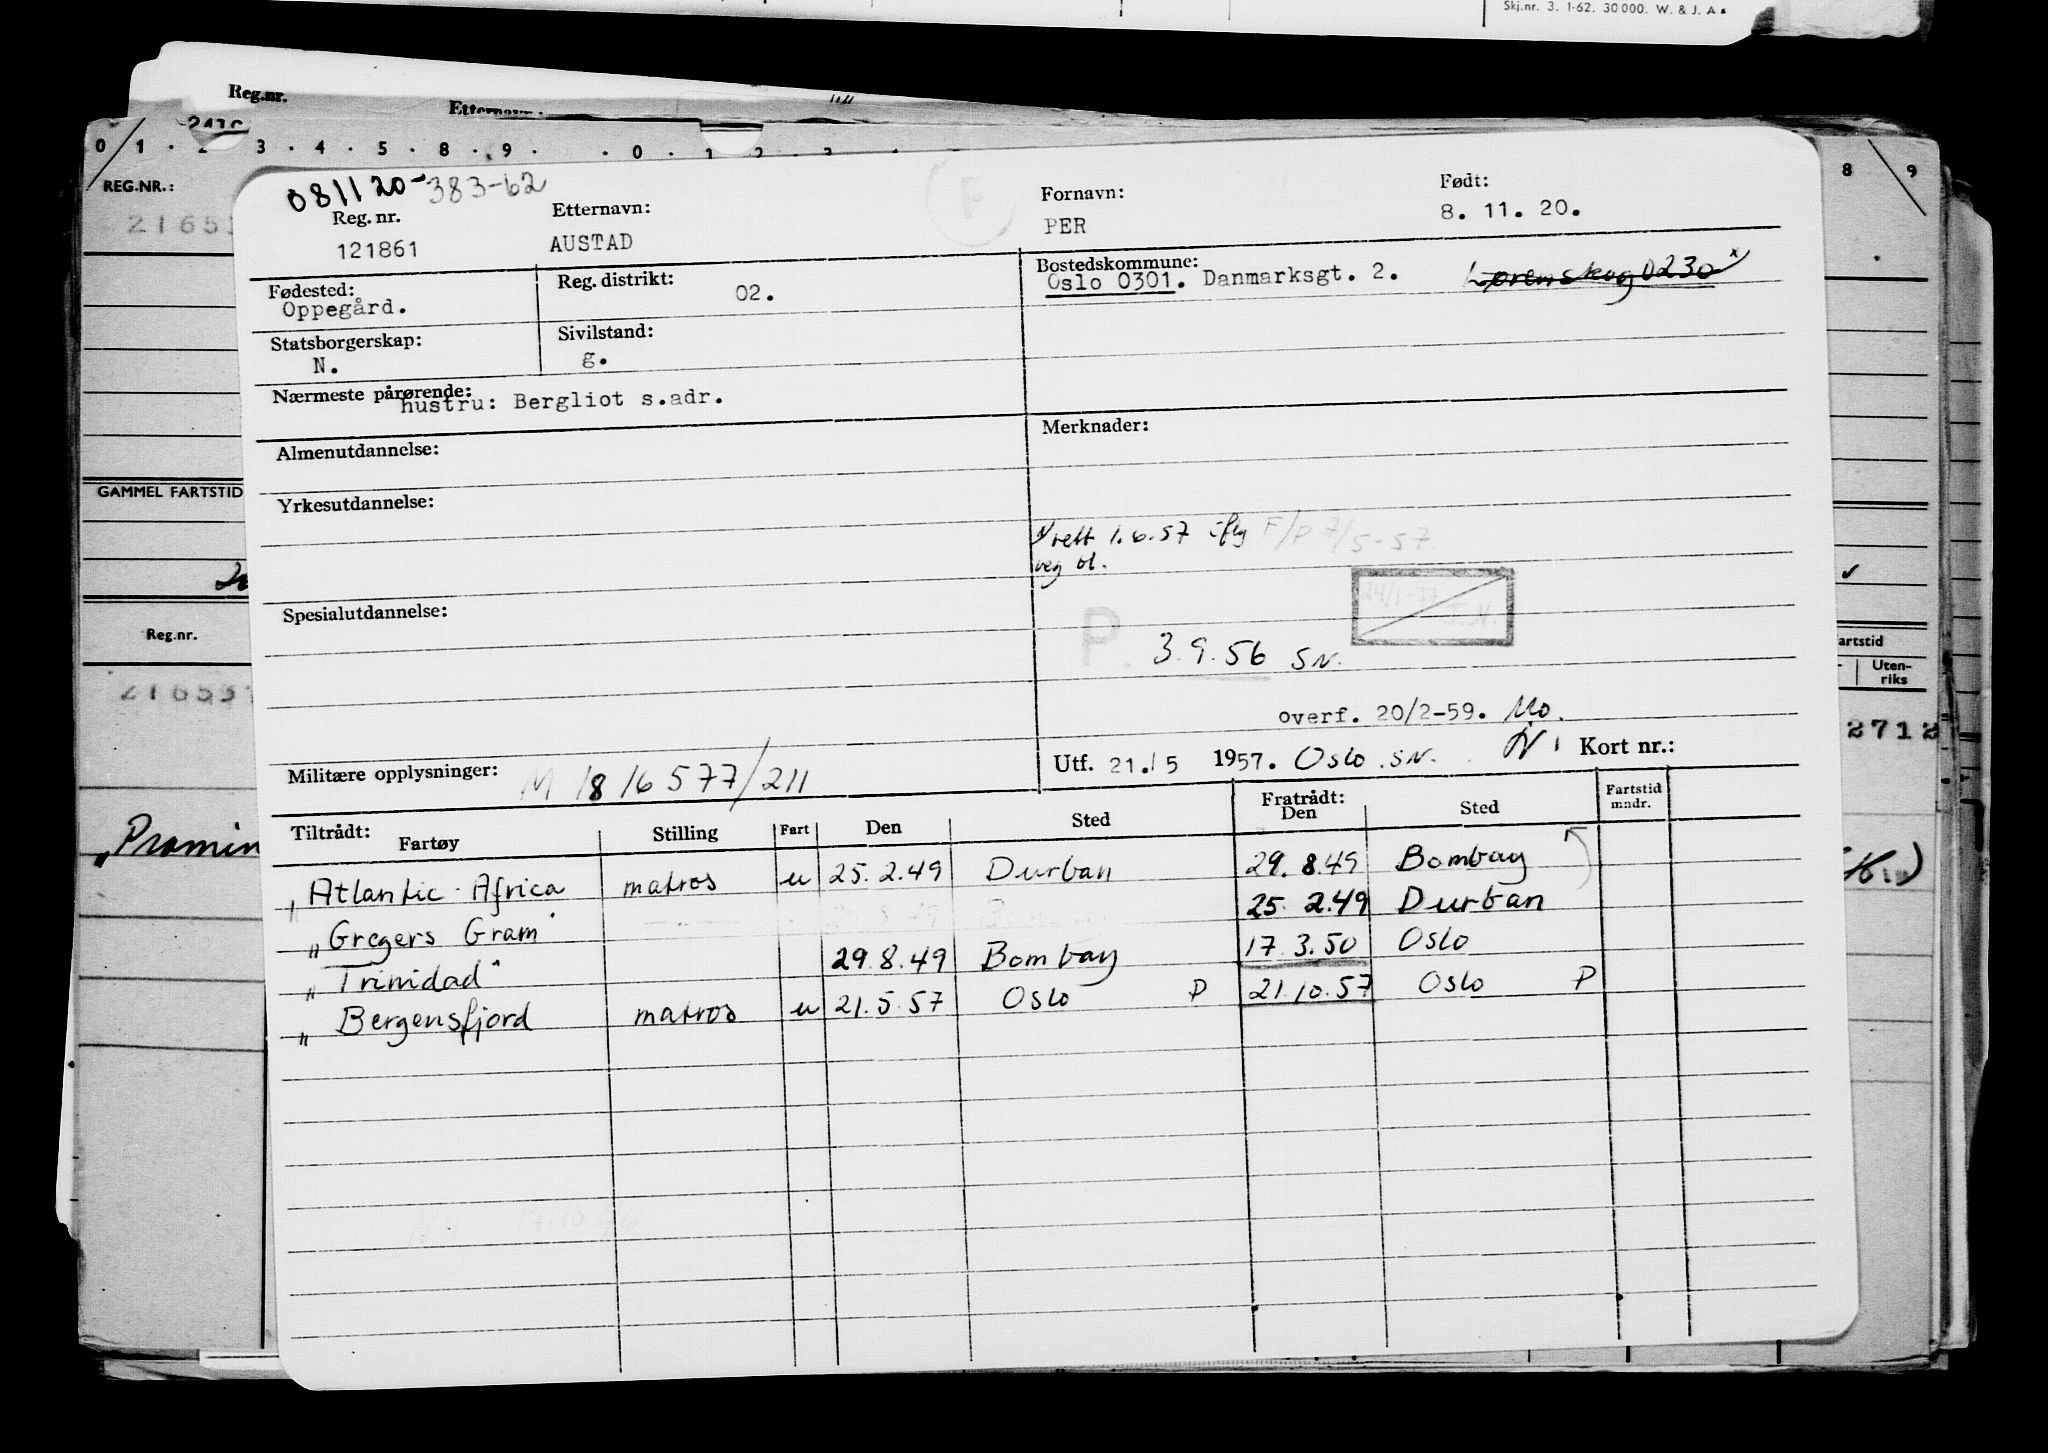 Skj.nr. 3. 1-62. 30000. W. & J. A.
Reg.nr.
Etternavn:
0 1 . 2 . 3 . 4 . 5 . 8 . 9 . . 0 . 1 2 . 3 4 8 9
REG.NR.:
081120-383-62
Reg. nr. Etternavn: Fornavn: Født:
121861 AUSTAD PER 8. 11. 20.
Fødested: Reg. distrikt: Bostedskommune:
Oppegård. 02. Oslo 0301. Danmarksgt. 2. Lørenskog 0230 x
Statsborgerskap: Sivilstand:
N. g.
Nærmeste pårørende:
hustru: Bergliot s.adr.
Almenutdannelse: Merknader:
GAMMEL FARTSTID
Yrkesutdannelse:
N rett 1.6.57 iflg F/P 7/5-57.
veg bl.
Spesialutdannelse:
24/1-77
J.N.
P. 3.9.56 SN.
Reg.nr.
artstid
Uten-
riks
overf. 20/2-59. Mo.
2712
Militære opplysninger: M 1816577/211
Utf. 21.15 1957. Oslo. SN. N Kort nr.:
Tiltrådt: Fartøy Stilling Fart Den Sted Fratrådt: Den Sted Fartstid mndr.
„Promin
„Atlantic Africa matros u 25.2.49 Durban 29.8.49 Bombay
„Gregers Gram" 25.2.49 Durban
„Trinidad" 29.8.49 Bombay 17.3.50 Oslo
„Bergensfjord matros u 21.5.57 Oslo P 21.10.57 Oslo P